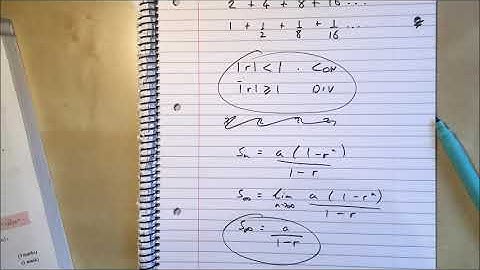 2 + 4 + 8 + 16 ...
1 + 1/2 + 1/8 + 1/16 ...
|r| < 1 . CON
|r| ⩾ 1 DIV
Sn = a(1-rⁿ)/1-r
S∞ = lim n→∞ a(1-rⁿ)/1-r
S∞ = a/1-r